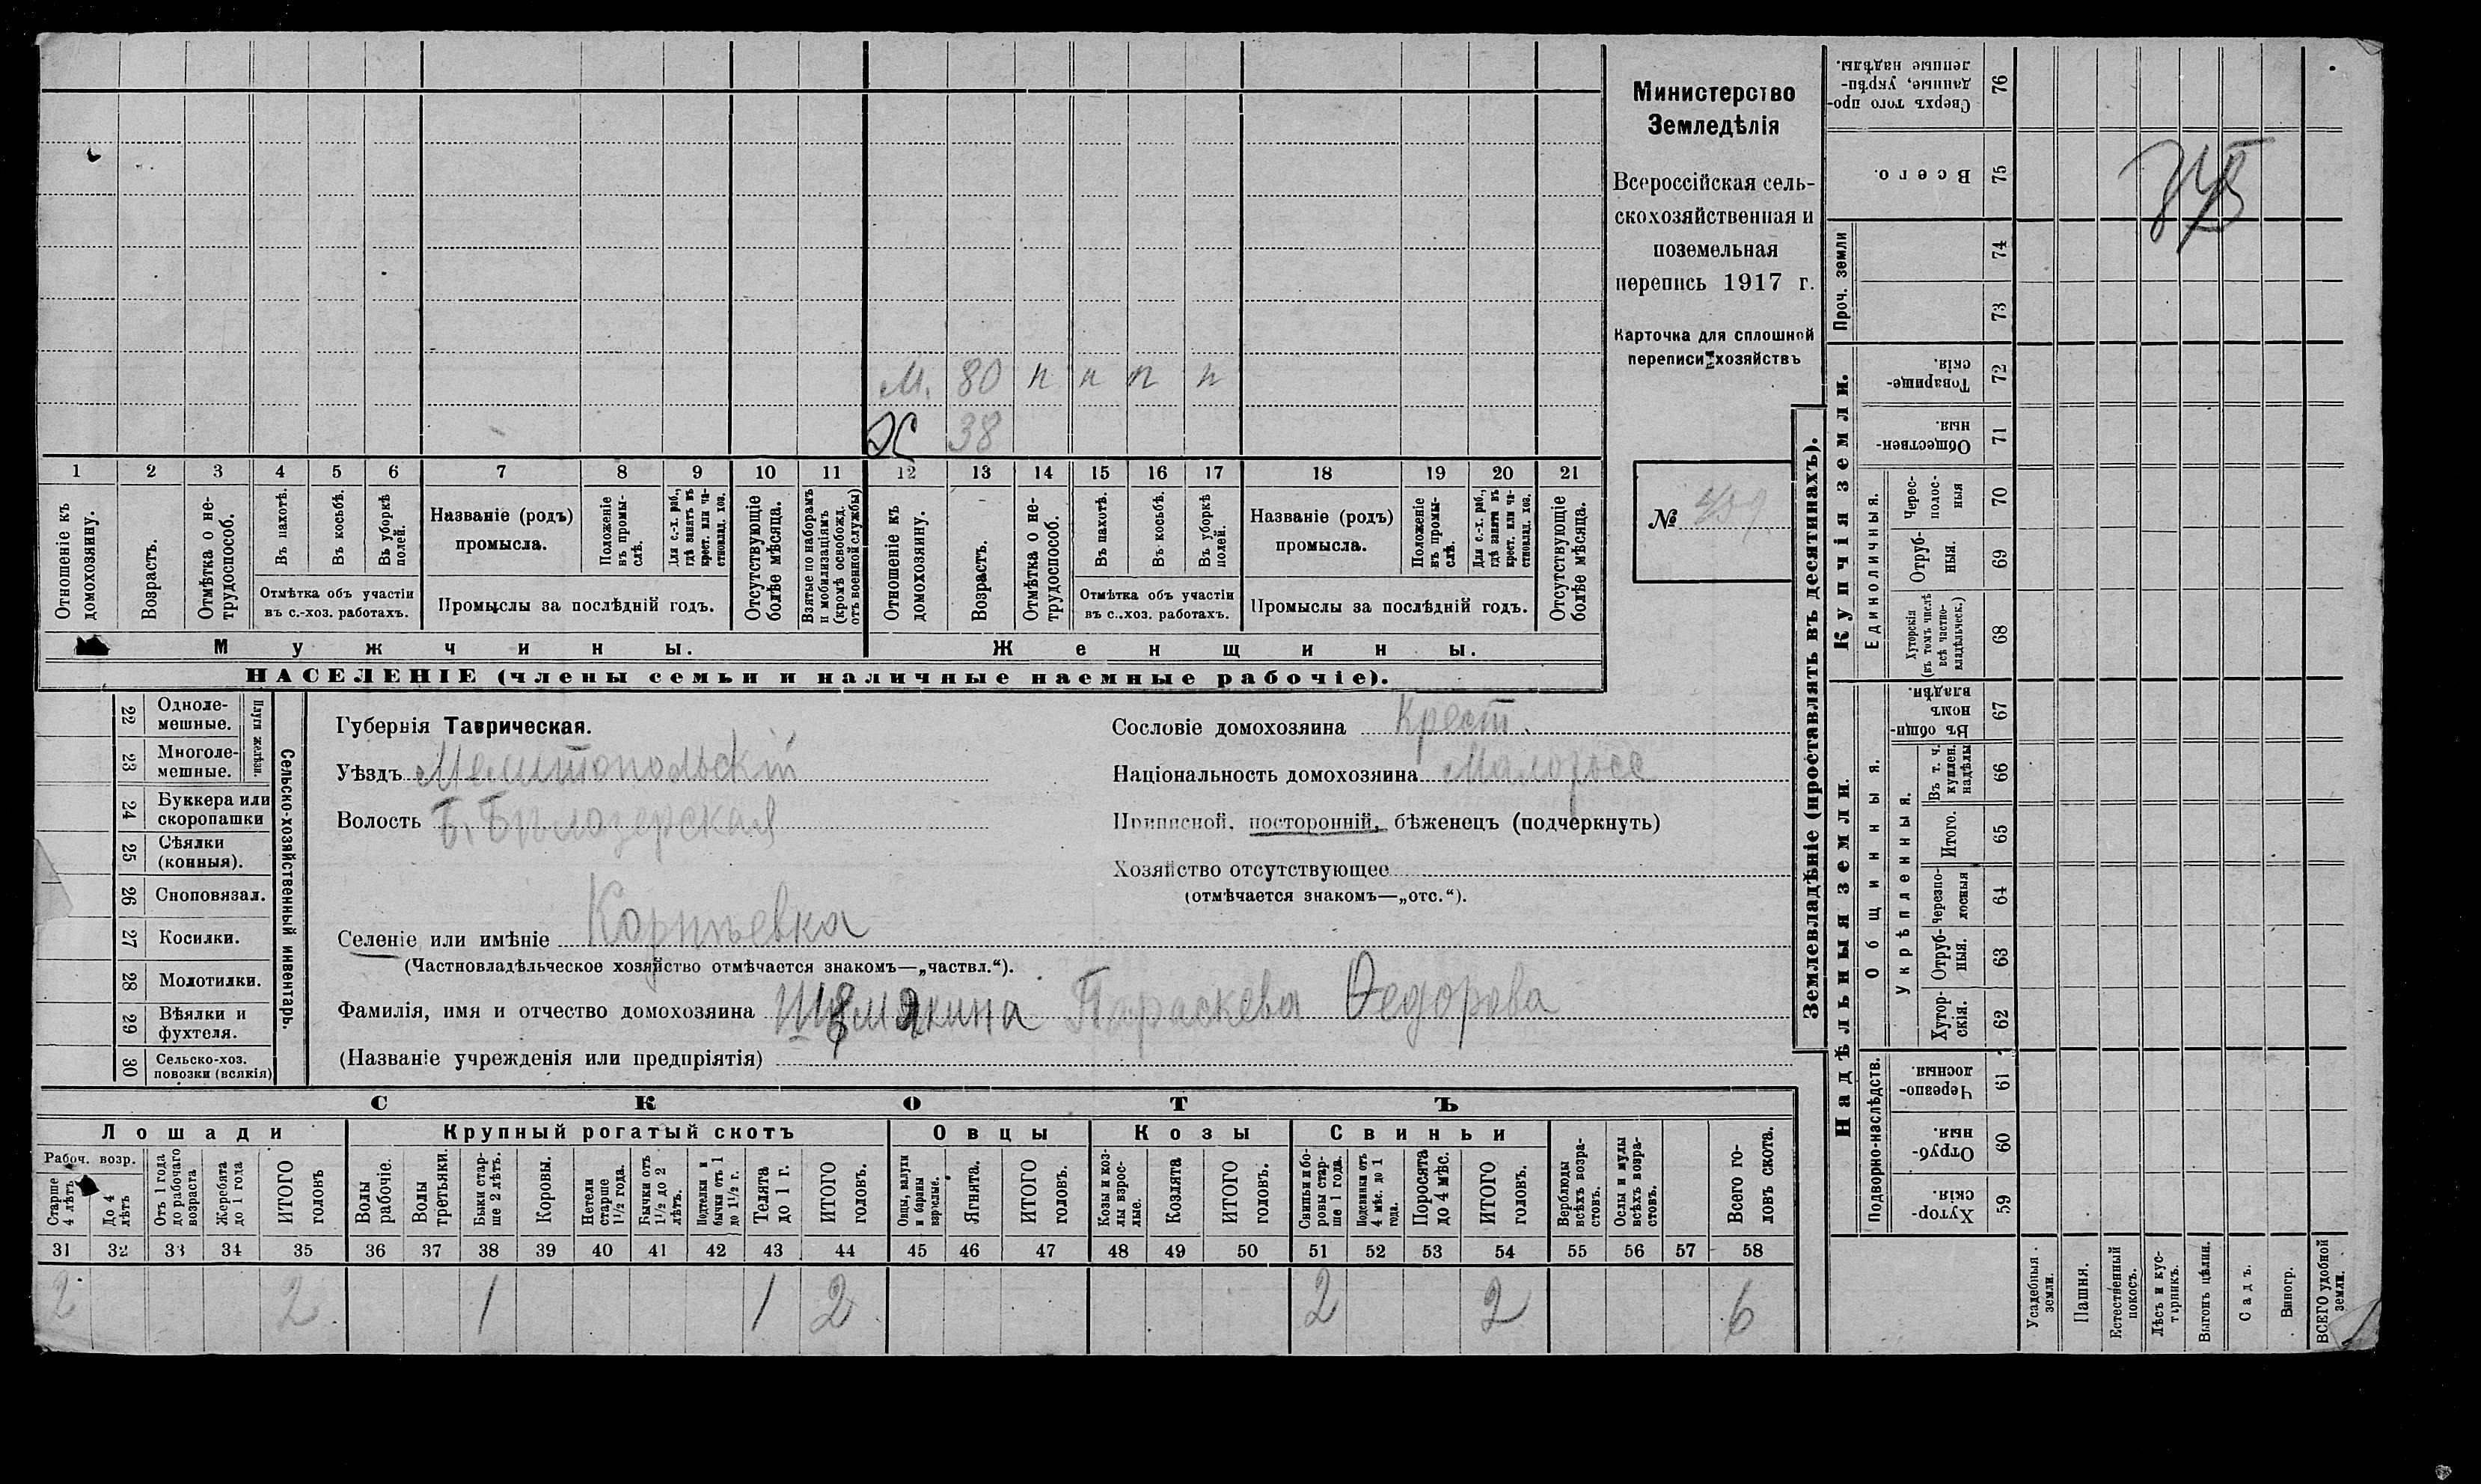 Министерство
Земледѣлія
Всероссійская сель-
скохозяйственная и
поземельная
перепись 1917 г.
Карточка для сплошной
переписи хозяйствъ
№
М. 80 н н н н
Ж 38
1 2 3 4 5 6 7 8 9 10 11 12 13 14 15 16 17 18 19 20 21
Отношеніе къ домохозяину.
Возрастъ.
Отмѣтка о не-трудоспособ.
Въ пахотѣ.
Въ косьбѣ.
Въ уборкѣ полей.
Отмѣтка объ участіи
въ с.-хоз. работахъ.
Названіе (родъ)
промысла.
Положеніе въ промы-слѣ.
Для с.-х. раб., гдѣ занятъ въ крест. или ча-стновлад. хоз.
Промыслы за послѣдній годъ.
Отсутствующіе болѣе мѣсяца.
Взятые по наборамъ и мобилизаціямъ (кромѣ освобожд. отъ военной службы)
Отношеніе къ домохозяину.
Возрастъ.
Отмѣтка о не-трудоспособ.
Въ пахотѣ.
Въ косьбѣ.
Въ уборкѣ полей.
Отмѣтка объ участіи
въ с.-хоз. работахъ.
Названіе (родъ)
промысла.
Положеніе въ промы-слѣ.
Для с.-х. раб., гдѣ занята въ крест. или ча-стновлад. хоз.
Промыслы за послѣдній годъ.
Отсутствующіе болѣе мѣсяца.
Мужчины.
Женщины.
НАСЕЛЕНІЕ (члены семьи и наличные наемные рабочіе).
22 Одноле-мешные.
23 Многоле-мешные.
Плуги желѣзн.
24 Буккера или скоропашки
25 Сѣялки (конныя).
26 Сноповязал.
27 Косилки.
28 Молотилки.
29 Вѣялки и фухтеля.
30 Сельско-хоз. повозки (всякія)
Сельско-хозяйственный инвентарь.
Губернія Таврическая.
Уѣздъ Мелитопольскій
Волость Б. Бѣлозерская
Сословіе домохозяина Крест.
Національность домохозяина Малоросс
Приписной, посторонній, бѣженецъ (подчеркнуть)
Хозяйство отсутствующее
(отмѣчается знакомъ—„отс.“).
Селеніе или имѣніе Корнѣевка
(Частновладѣльческое хозяйство отмѣчается знакомъ—„частвл.“).
Фамилія, имя и отчество домохозяина Шемякина Параскева Ѳедорова
(Названіе учрежденія или предпріятія)
СКОТЪ
Лошади
Крупный рогатый скотъ
Овцы
Козы
Свиньи
Рабоч. возр.
Старше 4 лѣтъ
До 4 лѣтъ
Отъ 1 года до рабочаго возраста
Жеребята до 1 года
ИТОГО головъ
Волы рабочіе.
Волы третьяки.
Быки стар-ше 2 лѣтъ.
Коровы.
Нетели старше 1½ года.
Бычки отъ 1½ до 2 лѣтъ.
Подтелки и бычки отъ 1 до 1½ г.
Телята до 1 г.
ИТОГО головъ.
Овцы, валухи и бараны взрослые.
Ягнята.
ИТОГО головъ.
Козы и коз-лы взрос-лые.
Козлята
ИТОГО головъ.
Свиньи и бо-ровы стар-ше 1 года.
Подсвинки отъ 4 мѣс. до 1 года.
Поросята до 4 мѣс.
ИТОГО головъ.
Верблюды всѣхъ возра-стовъ.
Ослы и мулы всѣхъ возра-стовъ.
Всего го-ловъ скота.
31 32 33 34 35 36 37 38 39 40 41 42 43 44 45 46 47 48 49 50 51 52 53 54 55 56 57 58
2 2 1 1 2 2 2 6
Землевладѣніе (проставлять въ десятинахъ).
Купчія земли.
Надѣльныя земли.
Проч. земли
Единоличныя.
Общинныя.
Укрѣпленныя.
Подворно-наслѣдств.
Сверхъ того про-данные, укрѣп-ленные надѣлы. 76
Всего. 75
74
73
Товарище-скія. 72
Обществен-ныя. 71
Черес-полос-ныя 70
Отруб-ныя. 69
Хуторскія (въ томъ числѣ всѣ частно-владѣльческ.) 68
Въ общин-номъ владѣн. 67
Въ т. ч. куплен. надѣлы 66
Итого. 65
Черезпо-лосныя 64
Отруб-ныя. 63
Хутор-скія. 62
Черезпо-лосныя. 61
Отруб-ныя. 60
Хутор-скія. 59
Усадебныя земли.
Пашня.
Естественный покосъ.
Лѣсъ и кус-тарникъ.
Выгонъ цѣлин.
Садъ.
Виногр.
ВСЕГО удобной земли.